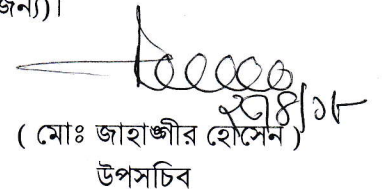 জন্য)।
২৭/৪/১৮
( মোঃ জাহাঙ্গীর হোসেন )
উপসচিব